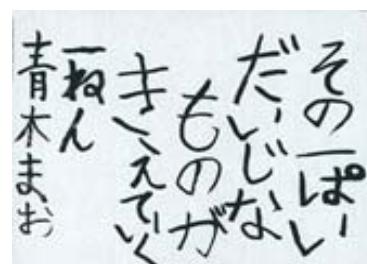 その一ぱい
だいじな
ものが
きえていく
一ねん
青木まお